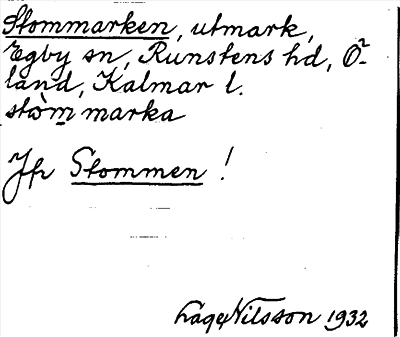 Stommarken, utmark,
Egby sn, Runstens hd, Ö-
land, Kalmar l.
stòm marka
Jfr Stommen!
Lage Nilsson 1932